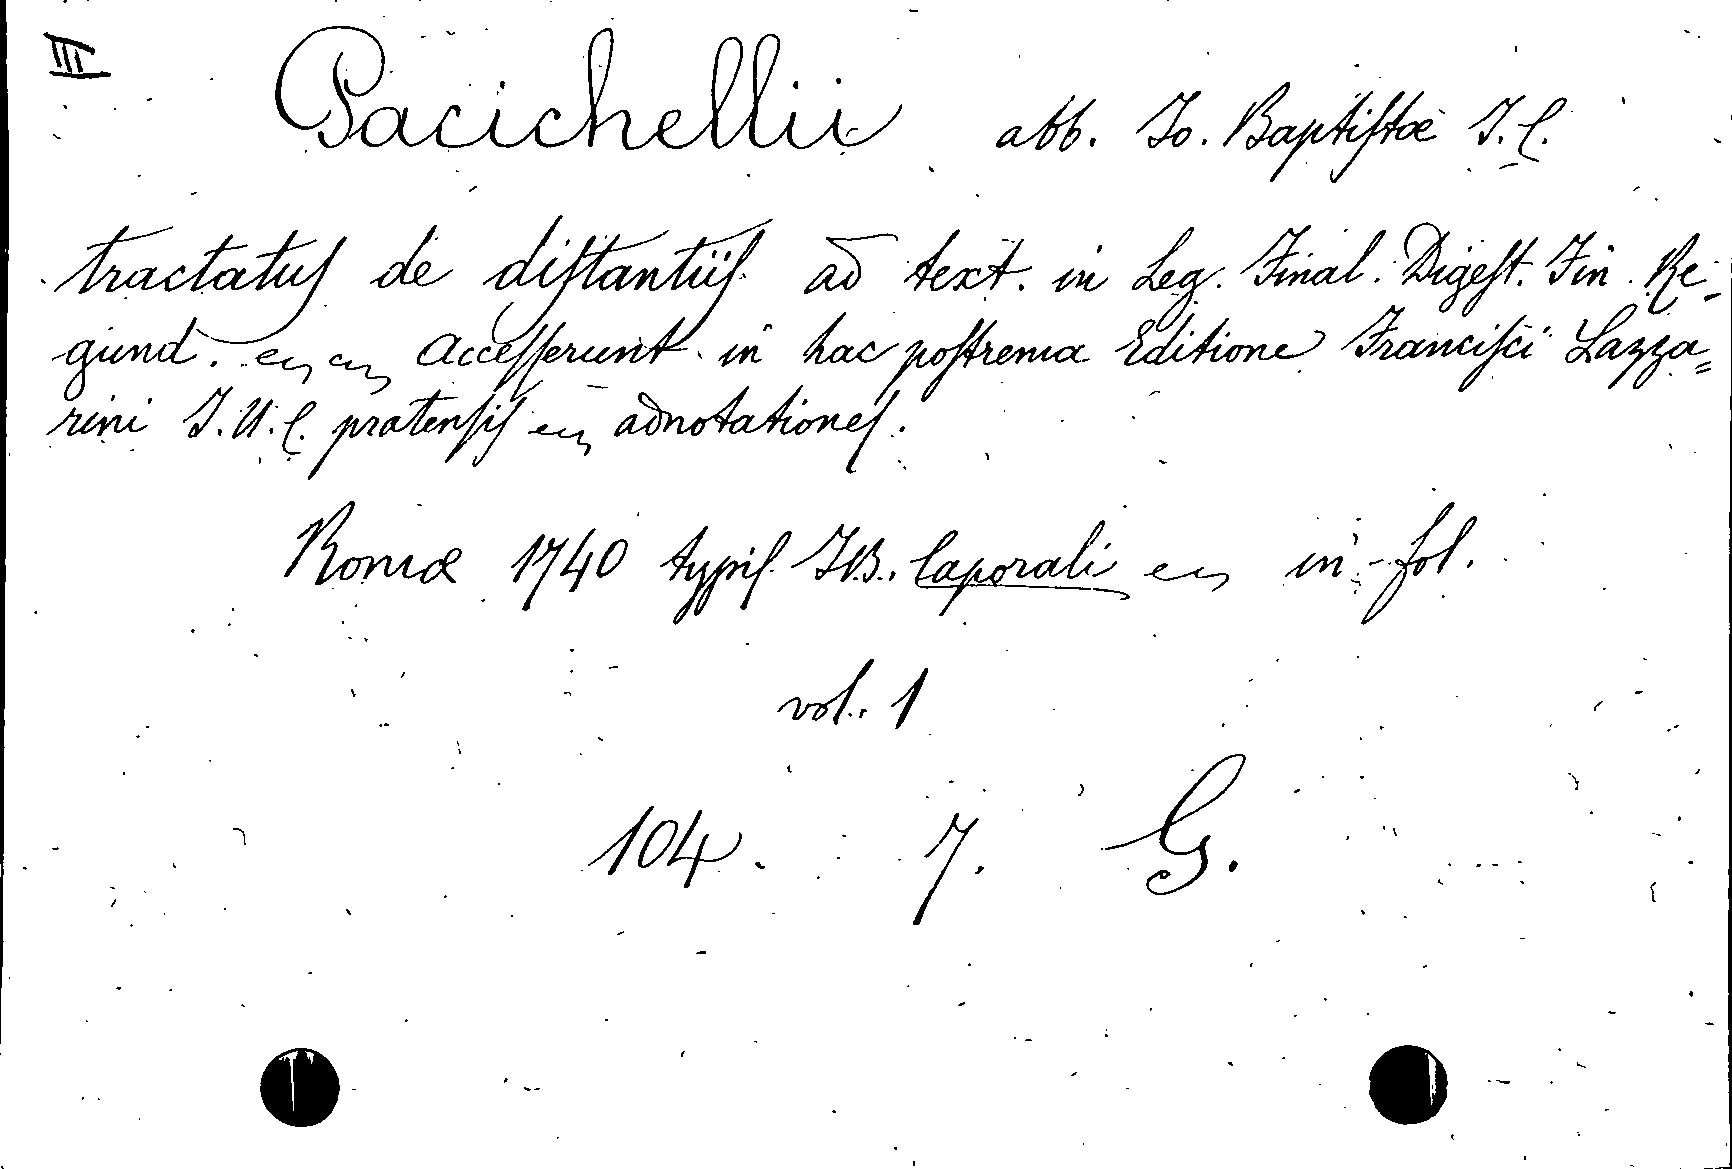 III
Pacichellii abb. Jo. Baptiſtæ J. C.
tractatuſ de diſtantiiſ ad text. in Leg. Final. Digeſt. Fin. Re-
gund. acceſſerunt in hac poſtrema Editione Franciſci Lazza=
rini J. U. C. pratenſiſ adnotationeſ.
Romæ 1740 typiſ J.B. Caporali in-fol.
vol. 1
104. 7. G.